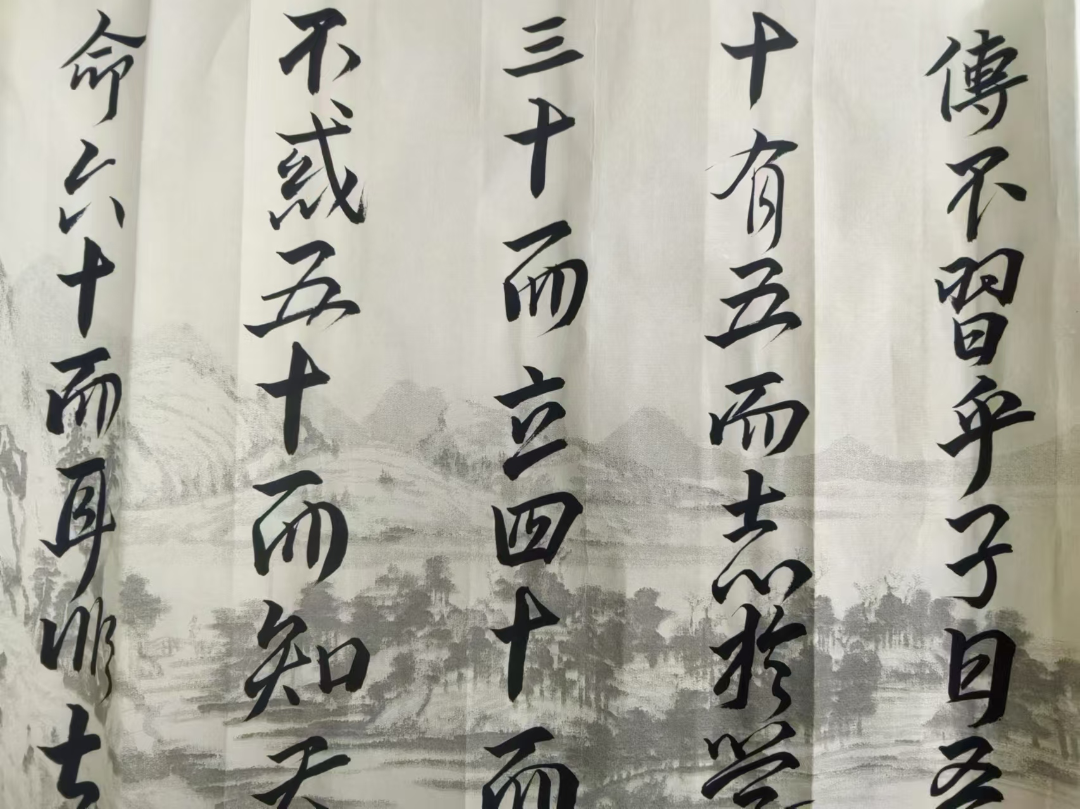 傳不習乎子曰吾
十有五而志於學
三十而立四十而
不惑五十而知天
命六十而耳順七